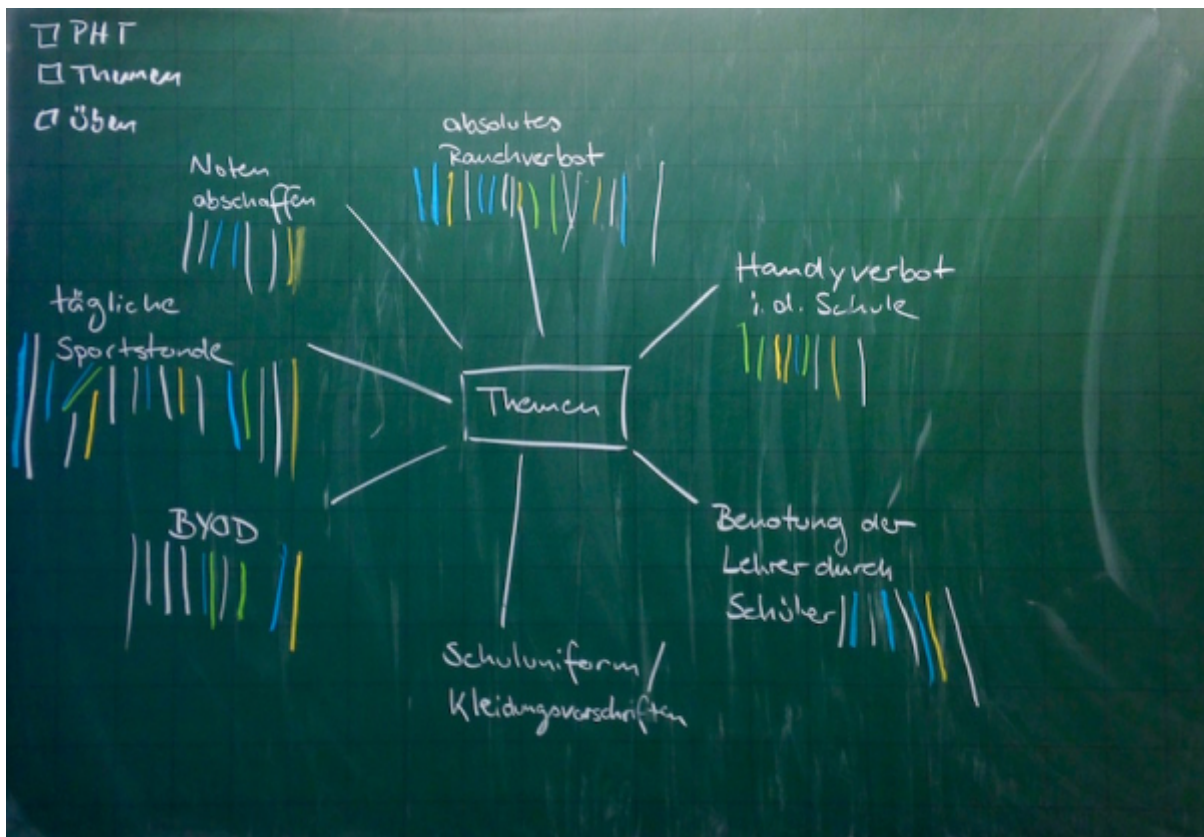 PHT
Themen
Üben
absolutes
Rauchverbot
Noten
abschaffen
Handyverbot
i.d. Schule
tägliche
Sportstunde
Themen
BYOD
Benotung der
Lehrer durch
Schüler
Schuluniform/
Kleidungsvorschriften